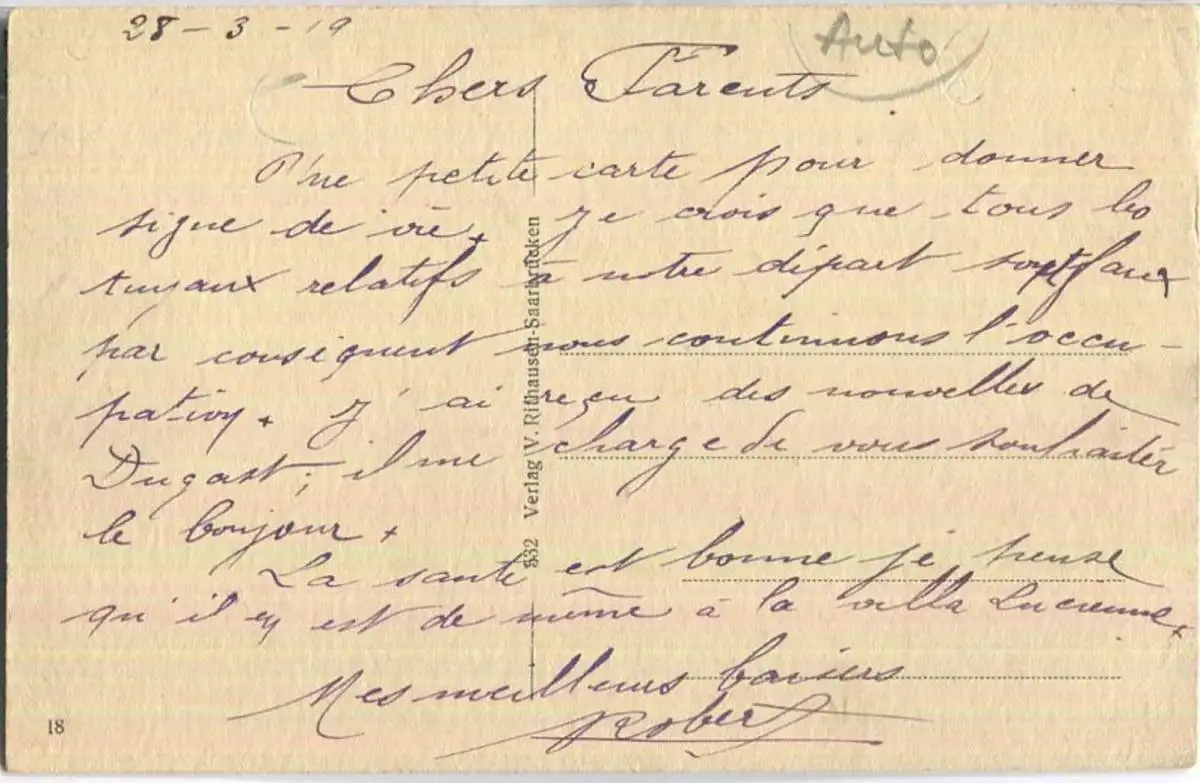 28 - 3 - 19
Auto
Chers Parents
Une petite carte pour donner
signe de vie. Je crois que tous les
tuyaux relatifs à notre départ sont faux
par conséquent nous continuons l'occu-
pation. J'ai reçu des nouvelles de
Dugast; il me charge de vous souhaiter
le bonjour.
La santé est bonne je pense
qu'il en est de même à la villa Lucienne.
Mes meilleurs baisers
Robert
532 Verlag V. Rithausen-Saarbrücken
18